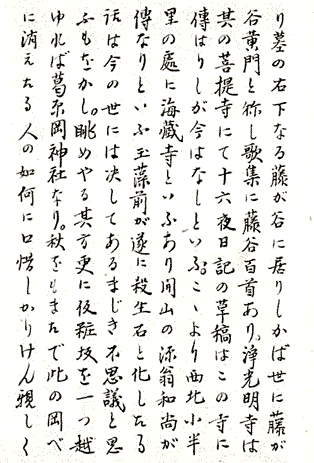 り墓の右下なる藤が谷に居りしかば世に藤が
谷黄門と称し歌集に藤谷百首あり。浄光明寺は
其の菩提寺にて十六夜日記の草稿はこの寺に
傳はりしが今はなしといふ。こゝより西北小半
里の處に海蔵寺といふあり開山の源翁和尚が
傳なりといふ玉藻前が遂に殺生石と化したる
話は今の世には决してあるまじき不思議と思
ふもをかし。眺めやる其方更に仮粧坂を一つ越
ゆれば葛原岡神社なり。秋をもまたで此の岡べ
に消えたる人の如何に口惜しかりけん親しく